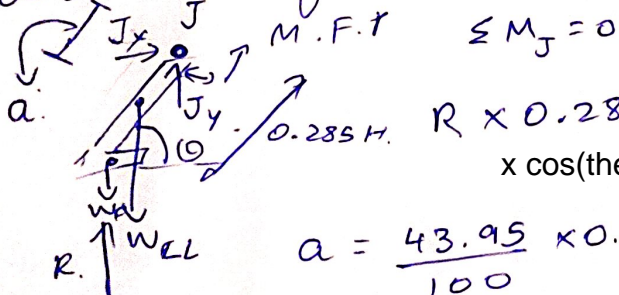 J
Jx
M.F.T
≤ MJ = 0
a.
Jy
θ
0.285H.
R × 0.28
x cos(the
WF
WLL
R.
a = 43.95/100 × 0.